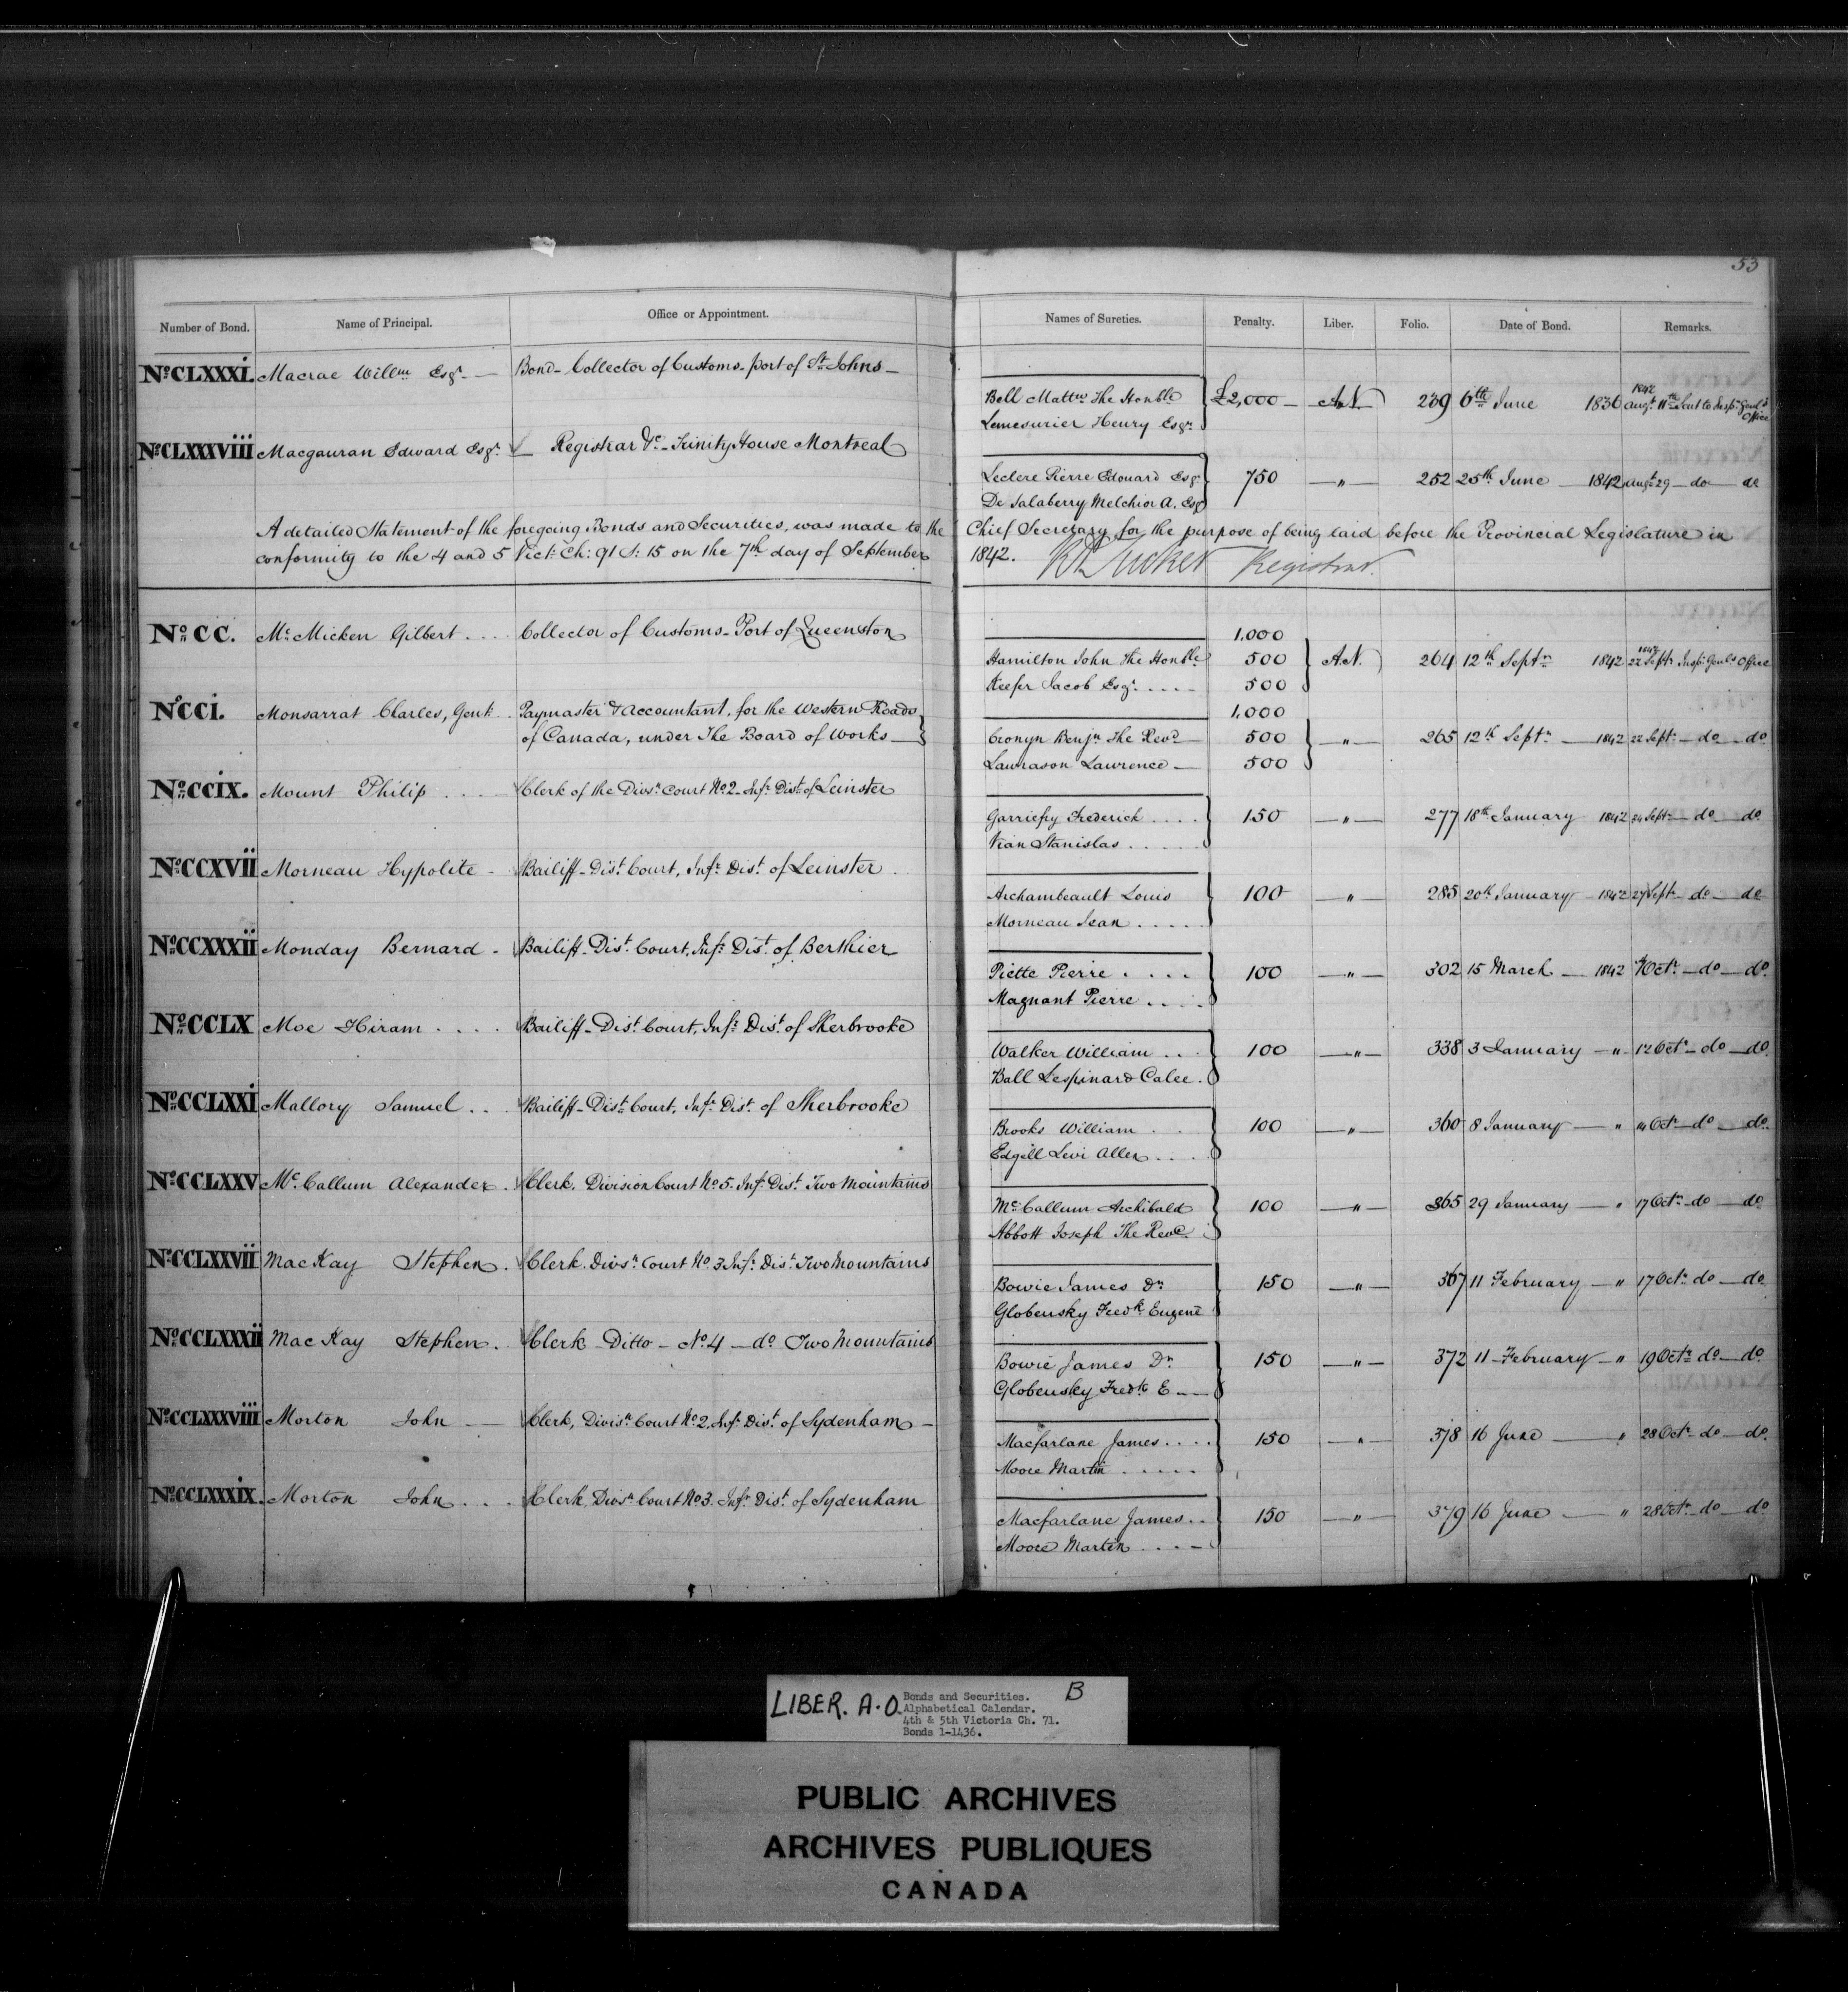 53
Number of Bond. Name of Principal. Office or Appointment. Names of Sureties. Penalty. Liber. Folio. Date of Bond. Remarks.
No. CLXXXi. Macrae Willm Esqr. — Bond - Collector of Customs - port of St. Johns —
Bell Matthw The Honble £2,000 — A.N. 239 6th June 1836 1842 augt 11th Sent to Insp. Genl's Office
Lemesurier Henry Esqr.
No. CLXXXViii Macgauran Edward Esqr. Registrar &c - Trinity House Montreal
Leclere Pierre Edouard Esqr. 750 — " — 252 25th June — 1842 augt 29 — do — do
De Salaberry Melchior A. Esq
A detailed Statement of the foregoing Bonds and Securities, was made to the Chief Secretary for the purpose of being laid before the Provincial Legislature in
conformity to the 4 and 5 Vict: Ch: 91 S: 15 on the 7th day of September 1842. R A Tucker Registrar.
No. CC. Mc. Micken Gilbert . . . Collector of Customs - Port of Queenston
1,000
Hamilton John The Honble 500 A.N. 264 12th Septr 1842 1842 22 Septr Inspr. Genls Office
Keefer Jacob Esqr. . . . 500
No. CCi. Monsarrat Charles, Gent. Paymaster & Accountant, for the Western Roads
of Canada, under The Board of Works —
1,000
Cronyn Benjn The Revd — 500 — " — 265 12th Septr — 1842 22 Septr — do — do
Lawrason Lawrence — 500
No. CCiX. Mount Philip . . . Clerk of the Divsn Court No. 2 - Infr. Dist. of Leinster
Garriepy Frederick . . . . 150 — " — 277 18th January 1842 24 Septr — do — do
Vian Stanislas . . . . .
No. CCXVii Morneau Hypolite - Bailiff - Dist. Court, Infr. Dist. of Leinster
Archambeault Louis 100 — " — 285 20th January - 1842 27 Septr do — do
Morneau Jean . . . . .
No. CCXXXii Monday Bernard - Bailiff - Dist. Court, Infr. Dist. of Berthier
Piette Pierre . . . . 100 — " — 302 15 March — 1842 7 Octr. — do — do
Magnant Pierre . . . .
No. CCLX Moe Hiram . . . . Bailiff - Dist. Court, Infr. Dist. of Sherbrooke
Walker William . . . 100 — " — 338 3 January — " 12 Octr — do — do
Ball Lespinard Calee.
No. CCLXXi Mallory Samuel . . . Bailiff - Dist. Court, Infr. Dist. of Sherbrooke
Brooks William . . 100 — " — 360 8 January — " 14 Octr — do — do
Edgell Levi Allen . . .
No. CCLXXV Mc. Callum Alexander . Clerk. Division Court No. 5. Infr. Dist. Two Mountains
Mc. Callum Archibald 100 — " — 365 29 January — " 17 Octr — do — do
Abbott Joseph The Revd.
No. CCLXXVii MacKay Stephen . Clerk. Divsn Court No. 3 Infr. Dist. Two Mountains
Bowie James Dr 150 — " — 367 11 February — " 17 Octr do — do
Globensky Fredk Eugene
No. CCLXXXii MacKay Stephen . Clerk - Ditto - No. 4 — do Two Mountains
Bowie James Dr 150 — " — 372 11 February — " 19 Octr do — do
Globensky Fredk E — —
No. CCLXXXViii Morton John — Clerk, Divisn Court No. 2, Infr. Dist. of Sydenham —
Macfarlane James . . . . 150 — " — 378 16 June — " 28 Octr do — do
Moore Martin . . . . .
No. CCLXXXiX. Morton John . . . Clerk, Divsn Court No. 3. Infr. Dist. of Sydenham
Macfarlane James . . 150 — " — 379 16 June — " 28 Octr — do — do
Moore Martin . . . .
LIBER. A.O. Bonds and Securities. B
Alphabetical Calendar.
4th & 5th Victoria Ch. 71.
Bonds 1-1436.
PUBLIC ARCHIVES
ARCHIVES PUBLIQUES
CANADA